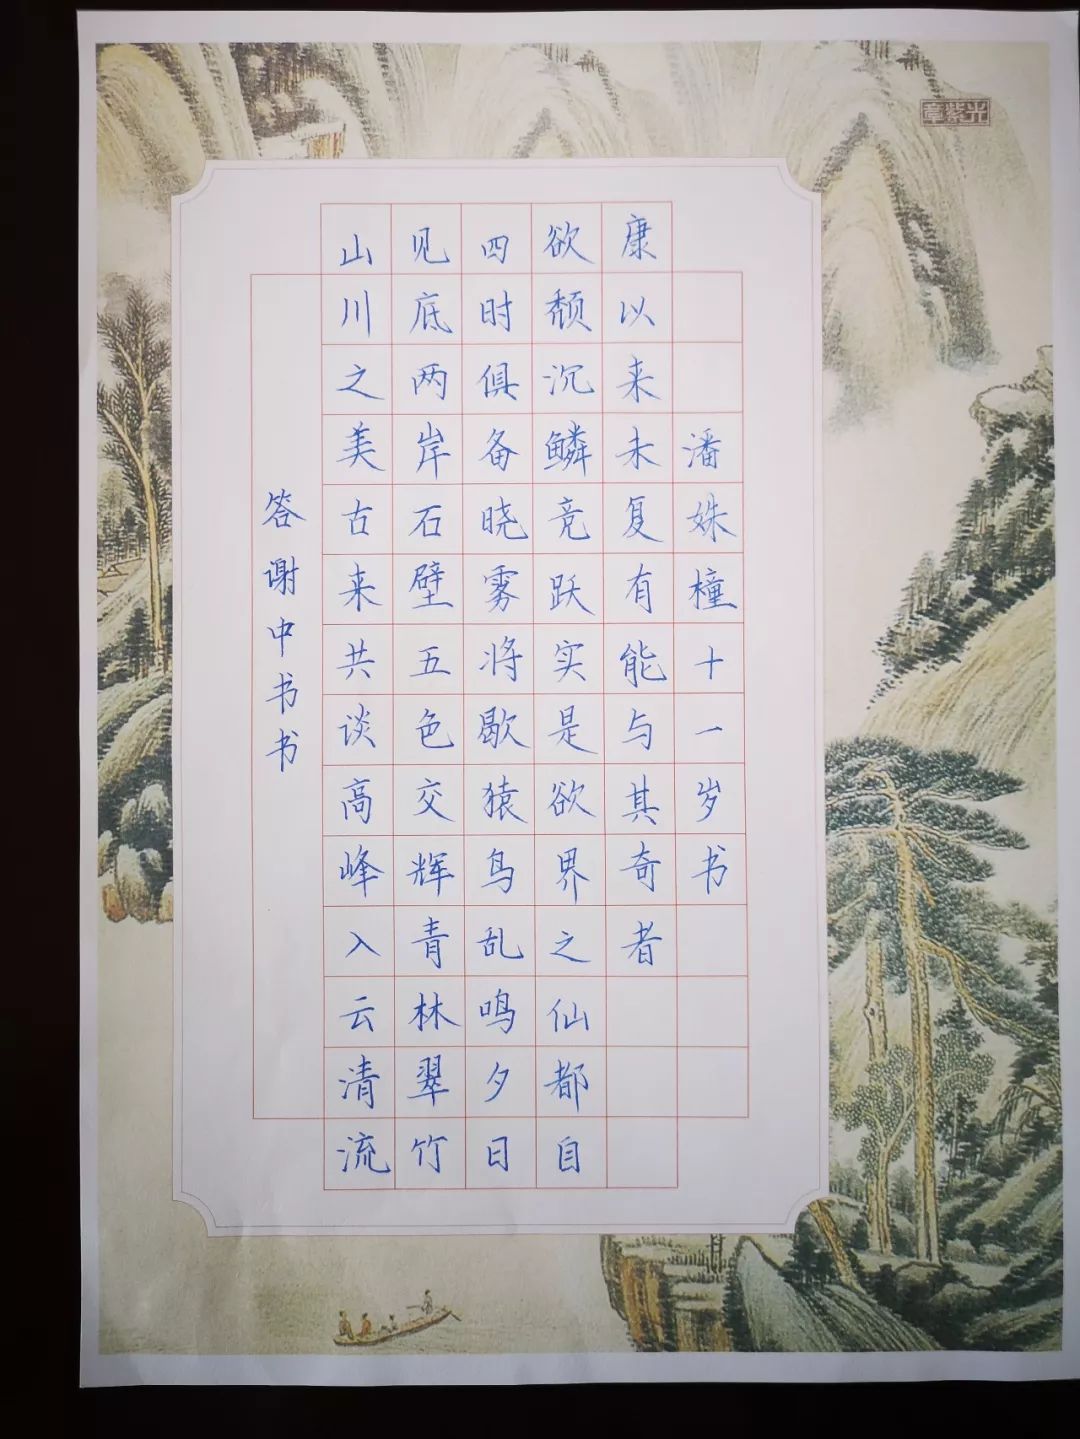 答谢中书书
山川之美古来共谈高峰入云清流
见底两岸石壁五色交辉青林翠竹
四时俱备晓雾将歇猿鸟乱鸣夕日
欲颓沉鳞竞跃实是欲界之仙都自
康以来未复有能与其奇者
潘姝橦十一岁书